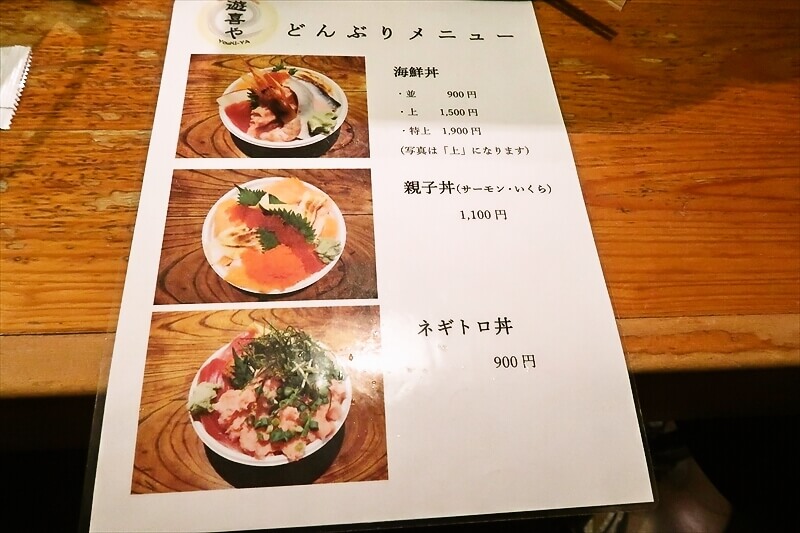 遊喜や
YUUKI-YA
どんぶりメニュー
海鮮丼
・並 900円
・上 1,500円
・特上 1,900円
(写真は「上」になります)
親子丼(サーモン・いくら)
1,100円
ネギトロ丼
900円